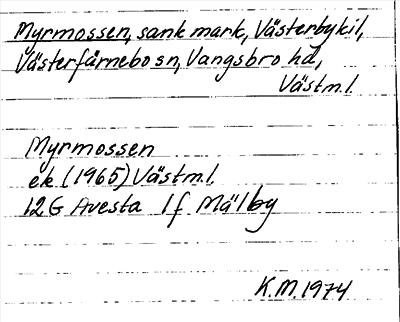 Myrmossen, sank mark, Västerbykil,
Västerfärnebo sn, Vangsbro hd,
Västm.l.
Myrmossen
ek (1965) Västm.l.
12G Avesta 1f Mälby
K.M.1974